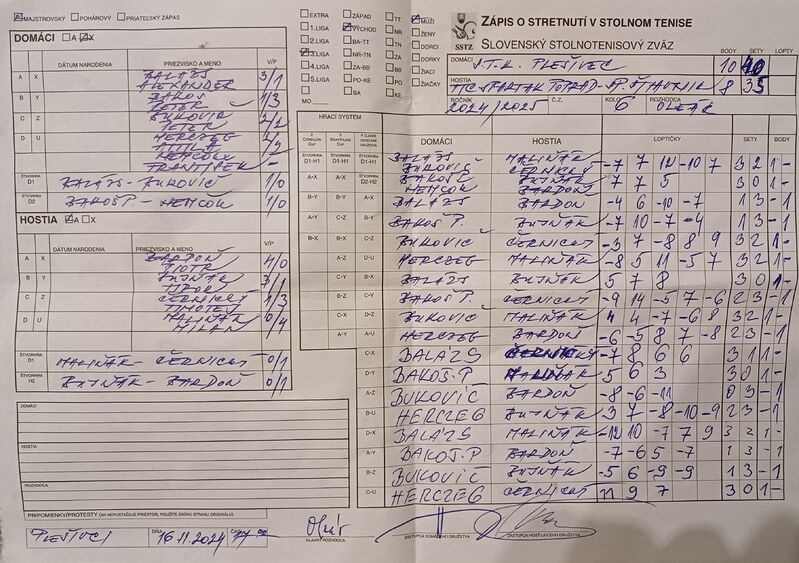 MAJSTROVSKÝ POHÁROVÝ PRIATEĽSKÝ ZÁPAS
EXTRA ZÁPAD TT MUŽI
1.LIGA VÝCHOD NR ŽENY
2.LIGA BA-TT TN DORCI
3.LIGA NR-TN ZA DORKY
4.LIGA ZA-BB BB ŽIACI
5.LIGA PO-KE PO ŽIAČKY
MO KE
SSTZ
ZÁPIS O STRETNUTÍ V STOLNOM TENISE
SLOVENSKÝ STOLNOTENISOVÝ ZVÄZ
BODY SETY LOPTY
DOMÁCI ŠT.K. PLEŠIVEC 10 40
HOSTIA TTC SPARTAK POPRAD-SP. ŠTIAVNIK 8 35
ROČNÍK 2024/2025 Č.Z. KOLO 6 ROZHODCA
DOMÁCI A X
DÁTUM NARODENIA PRIEZVISKO A MENO V/P
A X BALÁZS ALEXANDER 3/1
B Y BAKOŠ PETER 1/3
C Z BUKOVIČ PETER 2/2
D U HERCZEG ATTILA
HEMCOK FRANTIŠEK -
ŠTVORHRA D1 BALÁZS-BUKOVIČ 1/0
ŠTVORHRA D2 BAKOŠ P-HEMCOK 1/0
HOSTIA A X
DÁTUM NARODENIA PRIEZVISKO A MENO V/P
A X BARDOŇ PIOTR 4/0
B Y BUJŇÁK TIBOR 3/1
C Z ČERNICKÝ TIMOTEJ 1/3
D U MALIŇÁK MILAN 0/4
ŠTVORHRA D1 MALIŇÁK-ČERNICKÝ 0/1
ŠTVORHRA H2 BUJŇÁK-BARDOŇ 0/1
HRACÍ SYSTÉM
DOMÁCI HOSTIA LOPTIČKY SETY BODY
BALÁZS BUKOVIČ MALIŇÁK ČERNICKÝ -7 7 12 -10 7 3 2 1 -
BAKOŠ HEMCOK BUJŇÁK BARDOŇ 7 7 5 3 0 1 -
BALÁZS BARDOŇ -4 6 -10 -7 1 3 - 1
BAKOŠ P. BUJŇÁK -7 10 -7 -4 1 3 - 1
BUKOVIČ ČERNICKÝ -3 7 -8 8 9 3 2 1 -
HERCZEG MALIŇÁK -8 5 11 -5 7 3 2 1 -
BALÁZS BUJŇÁK 5 7 8 3 0 1 -
BAKOŠ P. ČERNICKÝ -9 14 -5 7 -6 2 3 - 1
BUKOVIČ MALIŇÁK 4 4 -7 -6 8 3 2 1 -
HERCZEG BARDOŇ -6 -5 8 7 -8 2 3 - 1
C-X BALÁZS ČERNICKÝ -7 8 6 6 3 1 1 -
D-Y BAKOŠ.P MALIŇÁK 5 6 3 3 0 1 -
A-Z BUKOVIČ BARDOŇ -8 -6 -11 0 3 - 1
B-U HERCZEG BUJŇÁK 3 7 -8 -10 -9 2 3 - 1
D-X BALÁZS MALIŇÁK -12 10 -7 7 9 3 2 1 -
A-Y BAKOŠ.P BARDOŇ -7 -6 5 -7 1 3 - 1
B-Z BUKOVIČ BUJŇÁK -5 6 -9 -9 1 3 - 1
C-U HERCZEG ČERNICKÝ 11 9 7 3 0 1 -
DOMÁCI
HOSTIA
ROZHODCA
PRIPOMIENKY/PROTESTY (AK NEPOSTAČUJE PRIESTOR, POUŽITE ZADNÚ STRANU ORIGINÁLU)
DŇA 16.11.2024
HLAVNÝ ROZHODCA
ZÁSTUPCA DOMÁCEHO DRUŽSTVA
ZÁSTUPCA HOSŤUJÚCEHO DRUŽSTVA